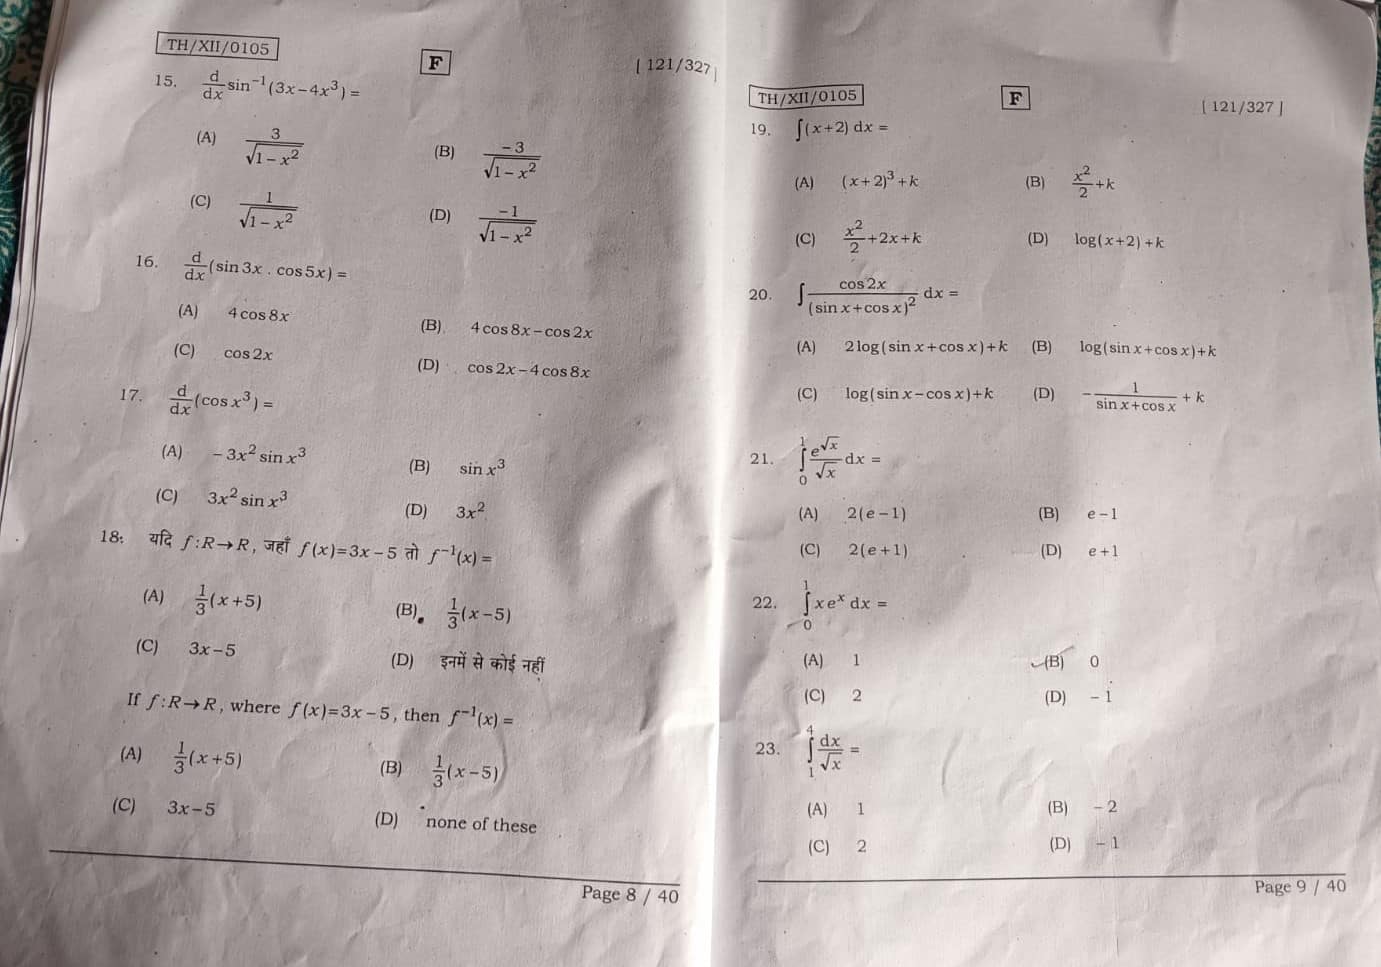 TH/XII/0105 F [ 121/327 ]
15. d/dx sin⁻¹(3x−4x³) =
(A) 3/√(1−x²) (B) −3/√(1−x²)
(C) 1/√(1−x²) (D) −1/√(1−x²)
16. d/dx (sin 3x . cos 5x) =
(A) 4 cos 8x (B) 4 cos 8x − cos 2x
(C) cos 2x (D) cos 2x − 4 cos 8x
17. d/dx (cos x³) =
(A) −3x² sin x³ (B) sin x³
(C) 3x² sin x³ (D) 3x²
18. यदि f : R → R, जहाँ f(x)=3x−5 तो f⁻¹(x) =
(A) 1/3 (x+5) (B) 1/3 (x−5)
(C) 3x−5 (D) इनमें से कोई नहीं
If f : R → R, where f(x)=3x−5, then f⁻¹(x) =
(A) 1/3 (x+5) (B) 1/3 (x−5)
(C) 3x−5 (D) none of these
Page 8 / 40
TH/XII/0105 F [ 121/327 ]
19. ∫(x+2) dx =
(A) (x+2)³+k (B) x²/2 +k
(C) x²/2 +2x+k (D) log(x+2)+k
20. ∫ cos 2x/(sin x+cos x)² dx =
(A) 2 log(sin x+cos x)+k (B) log(sin x+cos x)+k
(C) log(sin x−cos x)+k (D) −1/(sin x+cos x) + k
21. ∫₀¹ e^√x/√x dx =
(A) 2(e−1) (B) e−1
(C) 2(e+1) (D) e+1
22. ∫₀¹ x eˣ dx =
(A) 1 (B) 0
(C) 2 (D) −1
23. ∫₁⁴ dx/√x =
(A) 1 (B) −2
(C) 2 (D) −1
Page 9 / 40